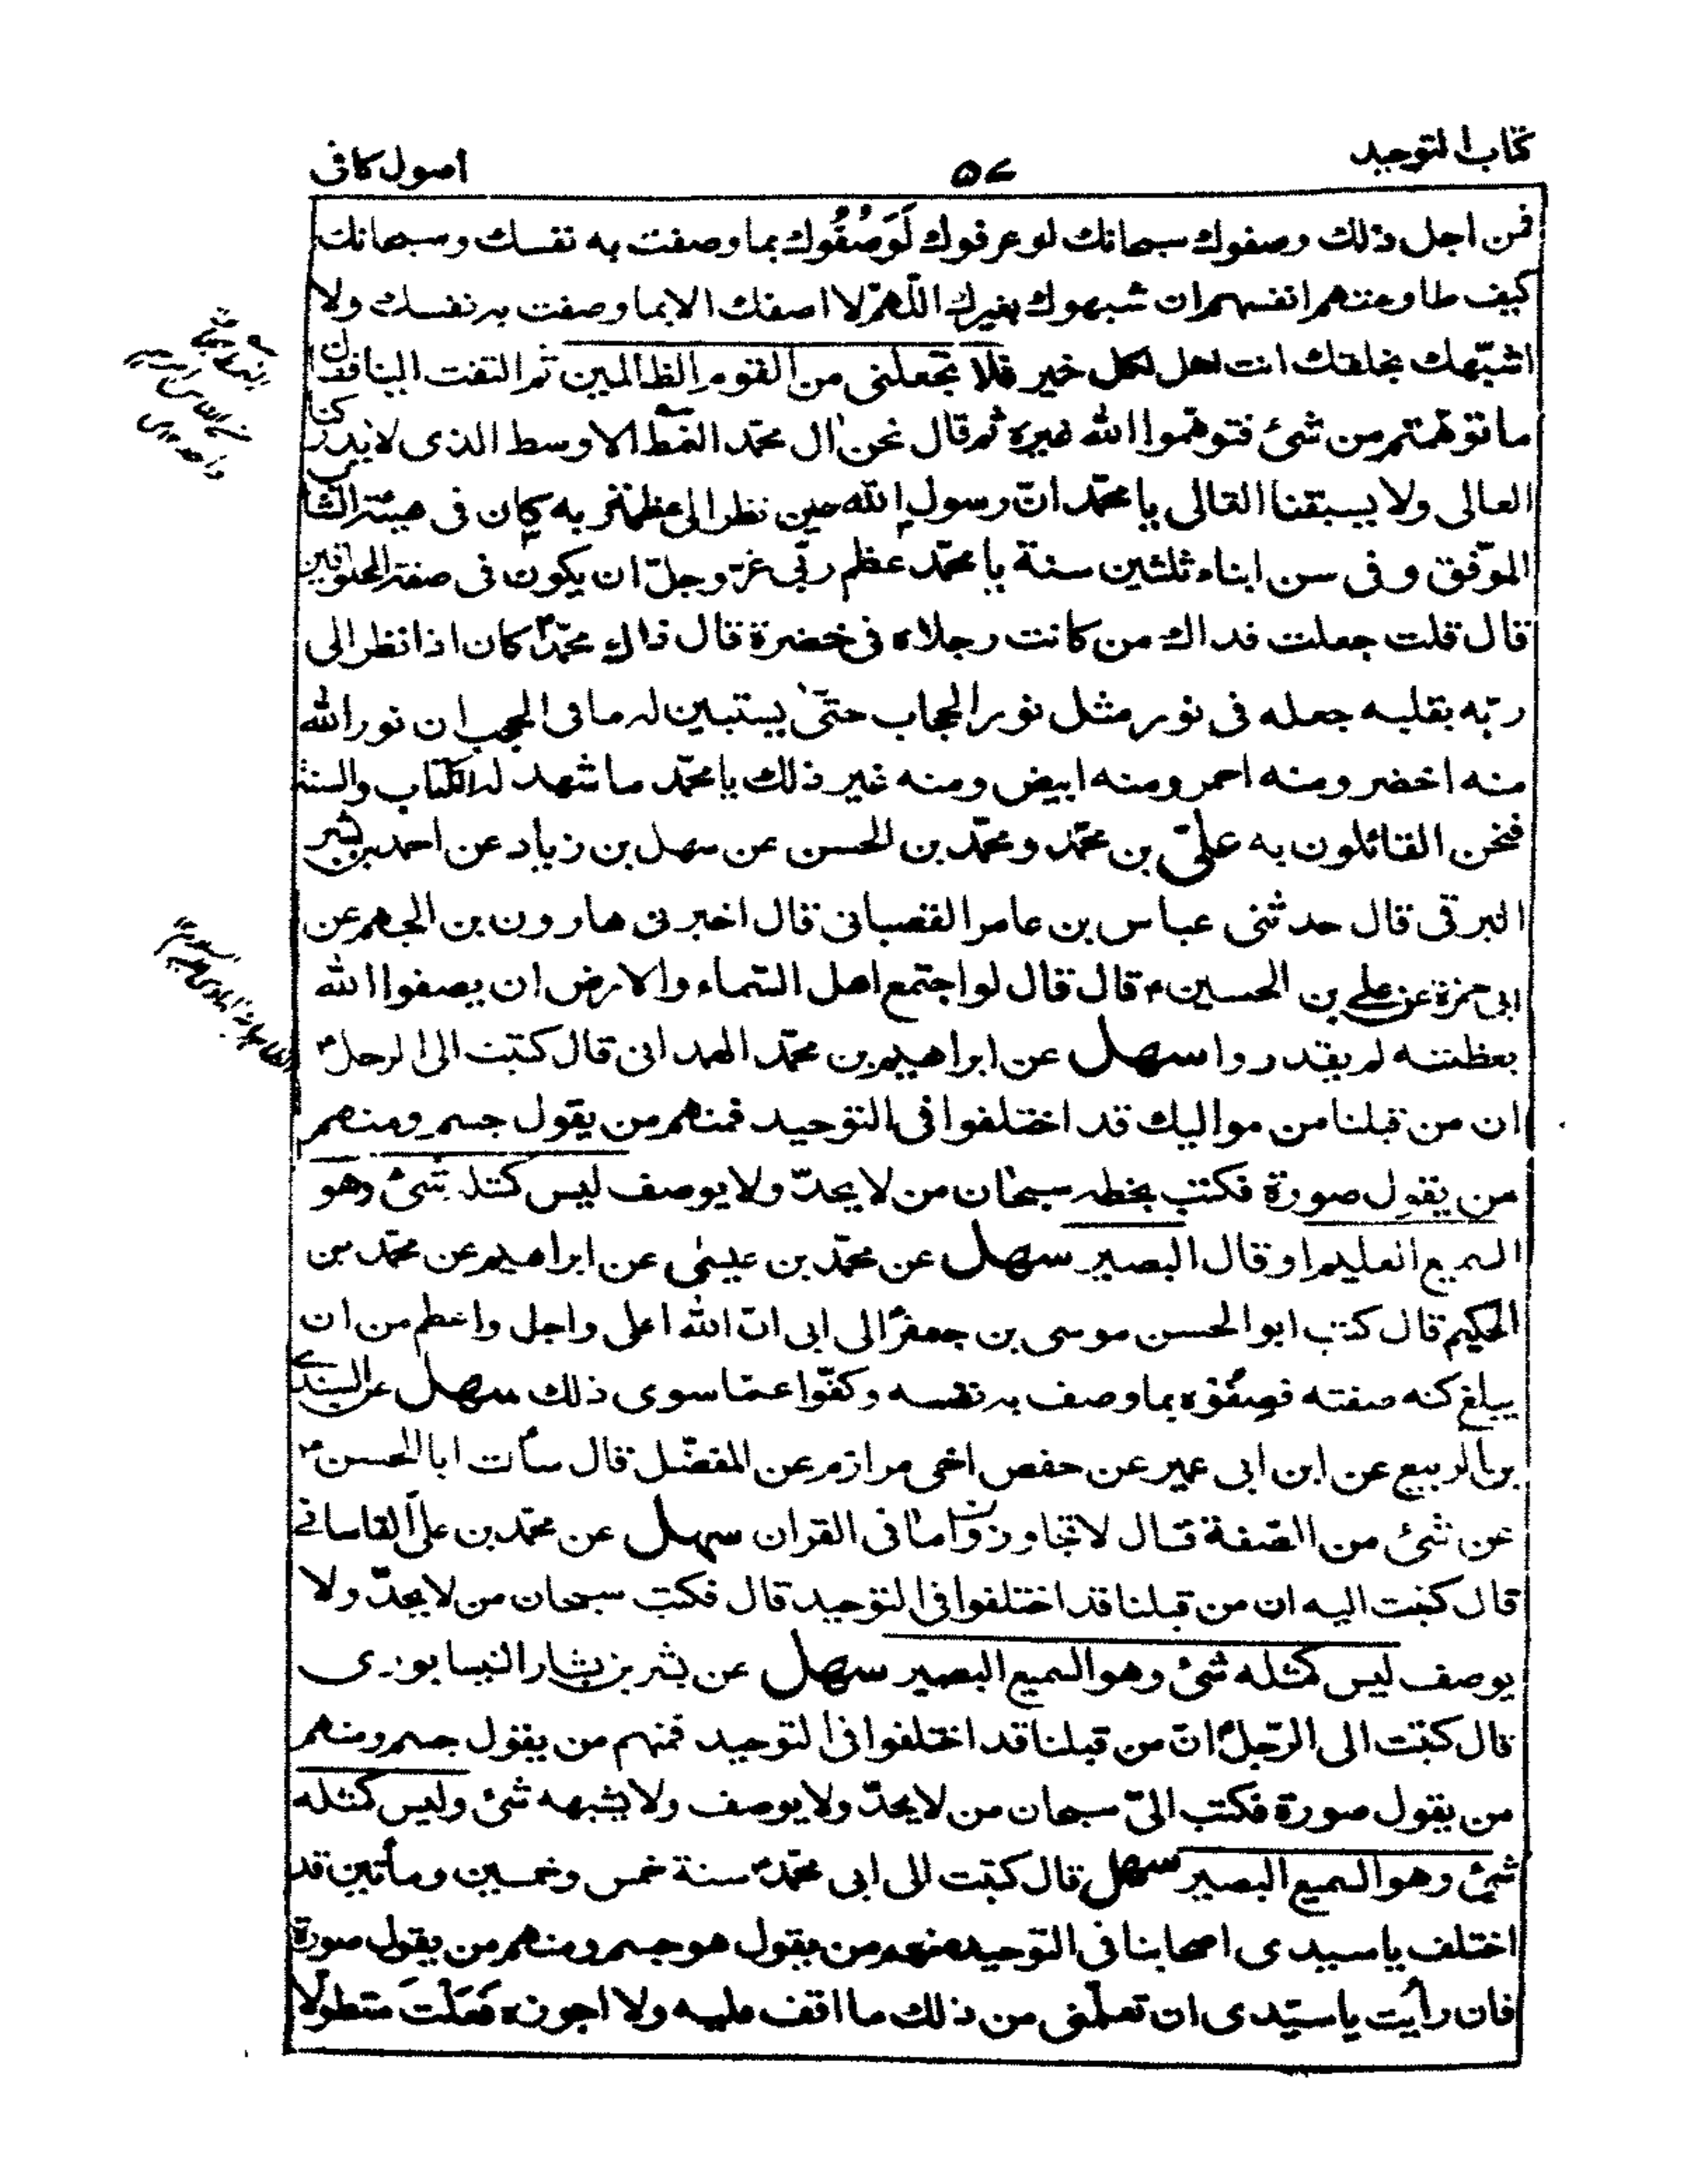 كتاب التوحيد
۵۷
اصول كافى
فمن اجل ذلك وصفوك سبحانك لو عرفوك لَوَصَفُوك بما وصفت به نفسك وسبحانك
كيف طاوعتهم انفسهم ان شبهوك بغيرك اللّهمّ لا اصفك الا بما وصفت به نفسك ولا
اشبّهك بخلقك انت اهل لكل خير فلا تجعلنى من القوم الظالمين ثم التفت الينا فقال
ما توهّمتم من شئ فتوهّموا الله غيره ثم قال نحن ال محمّد النمط الاوسط الذى لا يدركنا
الغالى ولا يسبقنا التالى يا محمّد انّ رسول الله حين نظر الى عظمة ربه كان فى هيئة الشاب
الموّفق وفى سن ابناء ثلثين سنة يا محمّد عظم ربّى عزّ وجلّ ان يكون فى صفة المخلوقين
قال قلت جعلت فداك من كانت رجلاه فى خضرة قال ذاك محمّدؐ كان اذا نظر الى
ربّه بقلبه جعله فى نور مثل نور الحجاب حتّى يستبين له ما فى الحجب ان نور الله
منه اخضر ومنه احمر ومنه ابيض ومنه غير ذلك يا محمّد ما شهد له الكتاب والسنة
فنحن القائلون به علىّ بن محمّد ومحمّد بن الحسن عن سهل بن زياد عن احمد بن بشير
البرقى قال حدثنى عباس بن عامر القصبانى قال اخبرنى هارون بن الجهم عن
ابى حمزة عن على بن الحسينؑ قال قال لو اجتمع اهل السّماء والارض ان يصفوا الله
بعظمته لم يقدروا سهل عن ابراهيم بن محمّد الهمدانى قال كتبت الى الرجلؑ
ان من قبلنا من مواليك قد اختلفوا فى التوحيد فمنهم من يقول جسم ومنهم
من يقول صورة فكتب بخطه سبحان من لا يحدّ ولا يوصف ليس كمثله شئ وهو
السميع العليم او قال البصير سهل عن محمّد بن عيسٰى عن ابراهيم عن محمّد بن
الحكيم قال كتب ابو الحسن موسى بن جعفرؑ الى ابى انّ الله اعلى واجل واعظم من ان
يبلغ كنه صفته فصِفُوْه بما وصف به نفسه وكفّوا عمّا سوى ذلك سهل عن السندى
بن الربيع عن ابن ابى عمير عن حفص اخى مرازم عن المفضّل قال سألت ابا الحسنؑ
عن شئ من الصّفة قال لا تجاوز ما فى القران سهل عن محمّد بن علىّ القاسانى
قال كتبت اليه ان من قبلنا قد اختلفوا فى التوحيد قال فكتب سبحان من لا يحدّ ولا
يوصف ليس كمثله شئ وهو السميع البصير سهل عن بشر بن بشار النيسابورى
قال كتبت الى الرّجلؑ انّ من قبلنا قد اختلفوا فى التوحيد فمنهم من يقول جسم ومنهم
من يقول صورة فكتب الىّ سبحان من لا يحدّ ولا يوصف ولا يشبهه شئ وليس كمثله
شئ وهو السميع البصير سهل قال كتبت الى ابى محمّدؑ سنة خمس وخمسين ومأتين قد
اختلف يا سيدى اصحابنا فى التوحيد منهم من يقول هو جسم ومنهم من يقول صورة
فان رأيت يا سيّدى ان تعلّمنى من ذلك ما اقف عليه ولا اجوزه فَعَلْتَ متطوّلا